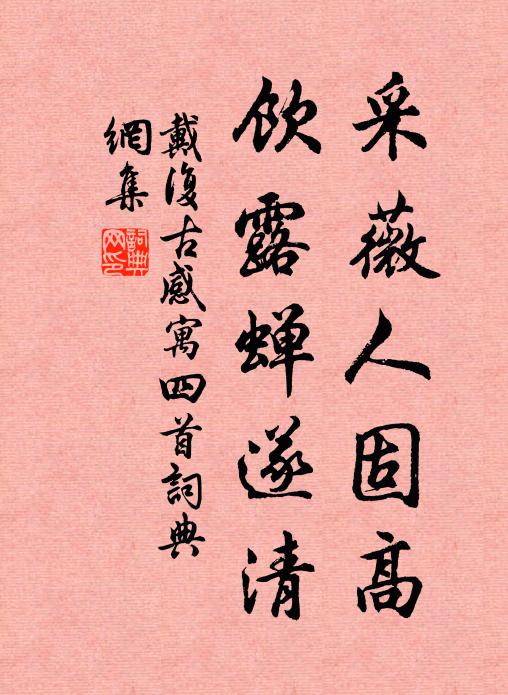 采薇人固高
飲露蟬遂清
戴復古感寓四首詞典
網集
詞典
网印